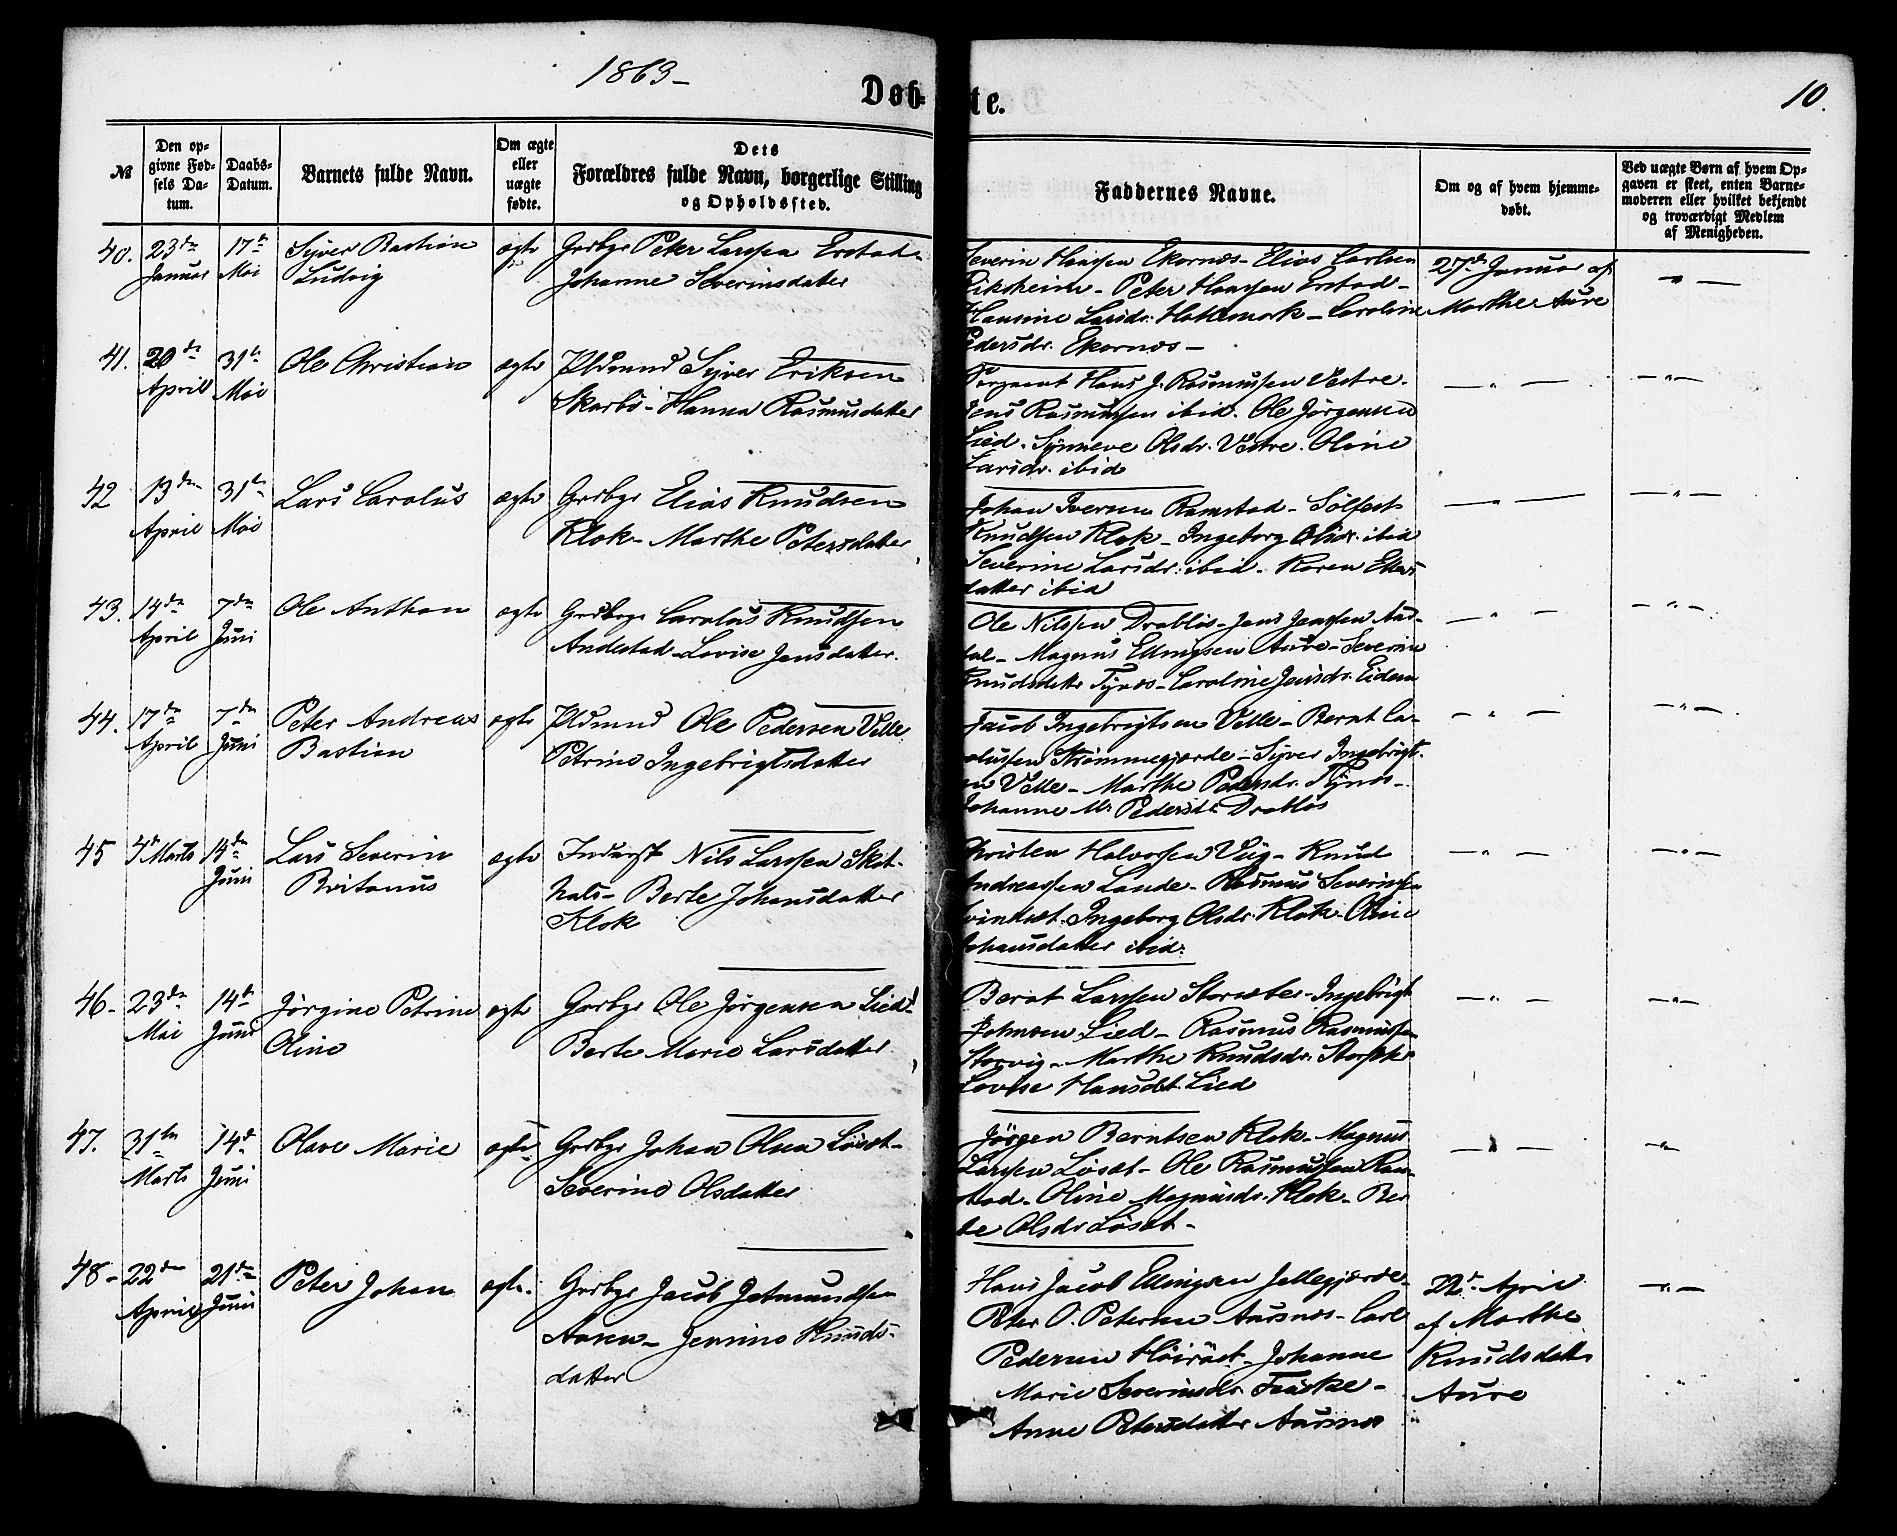 1863-
Døb-
te.
10.
№
Den op-
givne Fød-
sels Da-
tum.
Daabs-
Datum.
Barnets fulde Navn.
Om ægte
eller
uægte
fødte.
Dets
Forældres fulde Navn, borgerlige Stilling
og Opholdssted.
Faddernes Navne.
Om og af hvem hjemme-
døbt.
Ved uægte Børn af hvem Op-
gaven er skeet, enten Barne-
moderen eller hvilket bekjendt
og troværdigt Medlem
af Menigheden.
40.
23de
Januar
17de
Mai
Syver Bastian
Ludvig
ægte
Grdbgr Peter Larssen Erstad-
Johanne Severinsdatter
Severin Hanssen Ekornæs- Elias Carlsen
Riksheim- Peter Hanssen Erstad-
Hansine Larsdr: Hatlemark- Caroline
Pedersdr. Ekornæs-
27de Januar af
Marthe Aure
- " -
41.
20de
April
31te
Mai
Ole Christian
ægte
Pldmnd Syver Eriksen
Skarbø- Hanna Rasmusdatter
Sergeant Hans J. Rasmussen Vestre.
Jens Rasmussen ibid. Ole Jørgensen
Lied. Synneve Olsdr. Vestre. Oline
Larsdr. ibid
- " -
- " -
42
13de
April
31te
Mai
Lars Carolus
ægte
Grdbgr Elias Knudsen
Klok- Marthe Petersdatter
Johan Iversen Ramstad- Sølfest
Knudsen Klok- Ingeborg Olsdr. ibid
Severine Larsdr: ibid- Karen Ellers
datter ibid
- " -
- " -
43.
14de
April
7de
Juni
Ole Anthon
ægte
Grdbgr Carolus Knudsen
Andestad- Lovise Jensdatter.
Ole Nilssen Drabløs- Jens Jenssen Aus-
dal- Magnus Ellingsen Aure- Severine
Knudsdatter Tynæs- Caroline Jensdr. Eidem
- " -
- " -
44.
17de
April
7de
Juni
Peter Andreas
Bastian
ægte
Pldmnd Ole Pedersen Velle
Petrine Ingebrigtsdatter
Jacob Ingebrigtsen Velle- Bernt Ca-
rolussen Strømmegjerde- Syver Ingebrigt-
sen Velle- Marthe Pedersdr. Tynæs-
Johanne M. Pedersdr. Drabløs
- " -
- " -
45
4de Marts
14de
Juni
Lars Severin
Britanus
ægte
Inderst Nils Larssen Sket-
hals- Berte Johansdatter
Klok
Kristen Halvorsen Viig- Knud
Andreassen Lande- Rasmus Severinsen
Ingeborg Olsdr. Klok- Oline
Johansdatter ibid:
- " -
- " -
46-
23de
Mai
14de
Juni
Jørgine Petrine
Oline
ægte
Grdbgr Ole Jørgensen Lied-
Berte Marie Larsdatter
Bernt Larssen Storsæter- Ingebrigt
Johnsen Lied- Rasmus Rasmussen
Storvig- Marthe Knudsdr. Storsæter
Lovise Hansdat. Lied
- " -
- " -
47.
31te
Marts
14de
Juni
Olave Marie
ægte
Grdbgr Johan Olsen Løset-
Severine Olsdatter
Jørgen Berntsen Klok- Magnus
Larssen Løset- Ole Rasmussen Ram-
stad- Oline Magnusdr. Klok- Ber-
te Olsdr Løset-
- " -
- " -
48-
22de
April
21de
Juni
Peter Johan
ægte.
Grdbgr Jacob Getmundsen
Aasen- Jensine Knuds-
datter
Hans Jacob Ellingsen Jellegjærde-
Peter O. Petersen Aursnæs- Carl
Pedersen Høiræt- Johanne
Marie Severinsdr. Fauske-
Anne Petersdatter Aursnæs
22de April
af Marthe
Knudsdatter
Aure
- " -